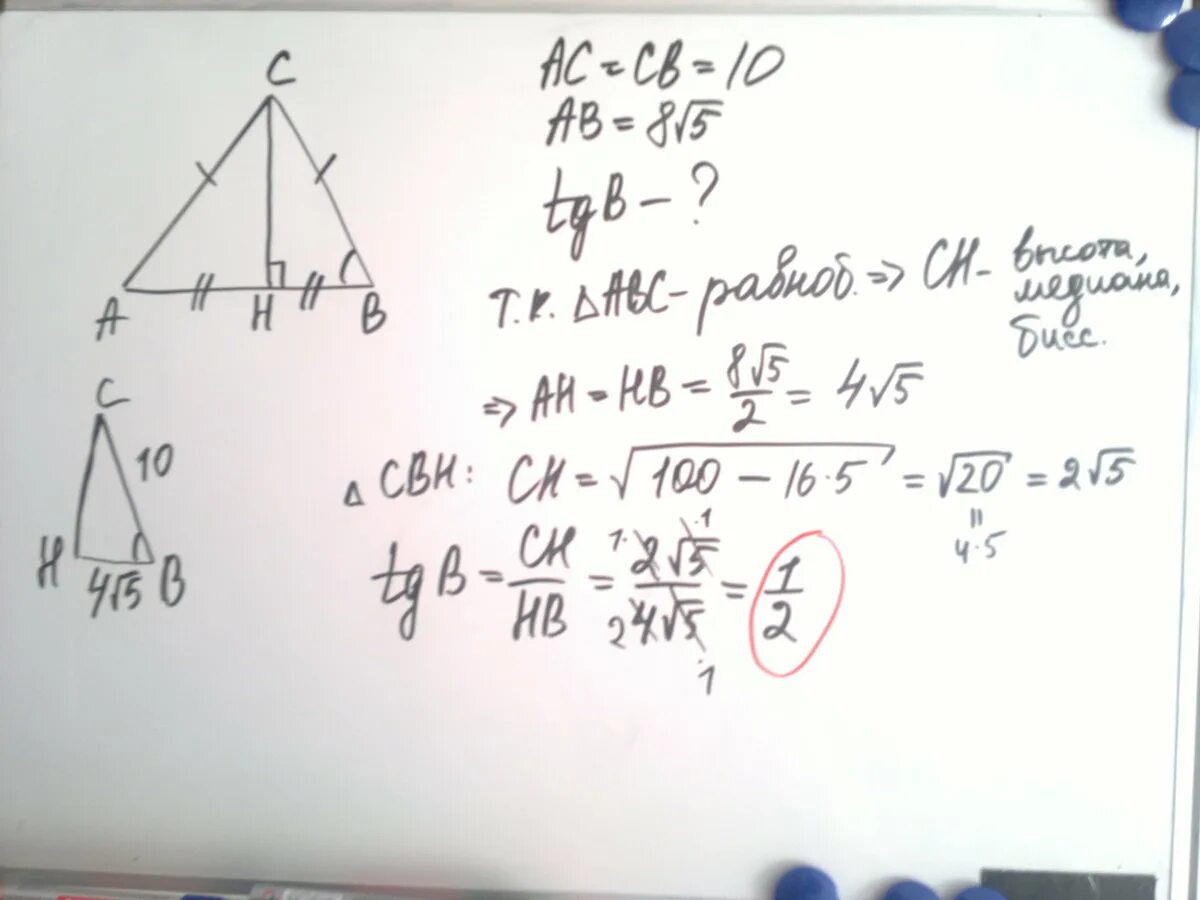 C
A H B
AC = CB = 10
AB = 8√5
tg B - ?
Т.к. △ABC - равноб. => CH - высота, медиана, бисс.
=> AH = HB = 8√5/2 = 4√5
C
10
H 4√5 B
△ CBH: CH = √(100 - 16·5) = √20 = 2√5
"
4·5
tg B = CH/HB = 2√5/4√5 = 1/2
1 1
2 1